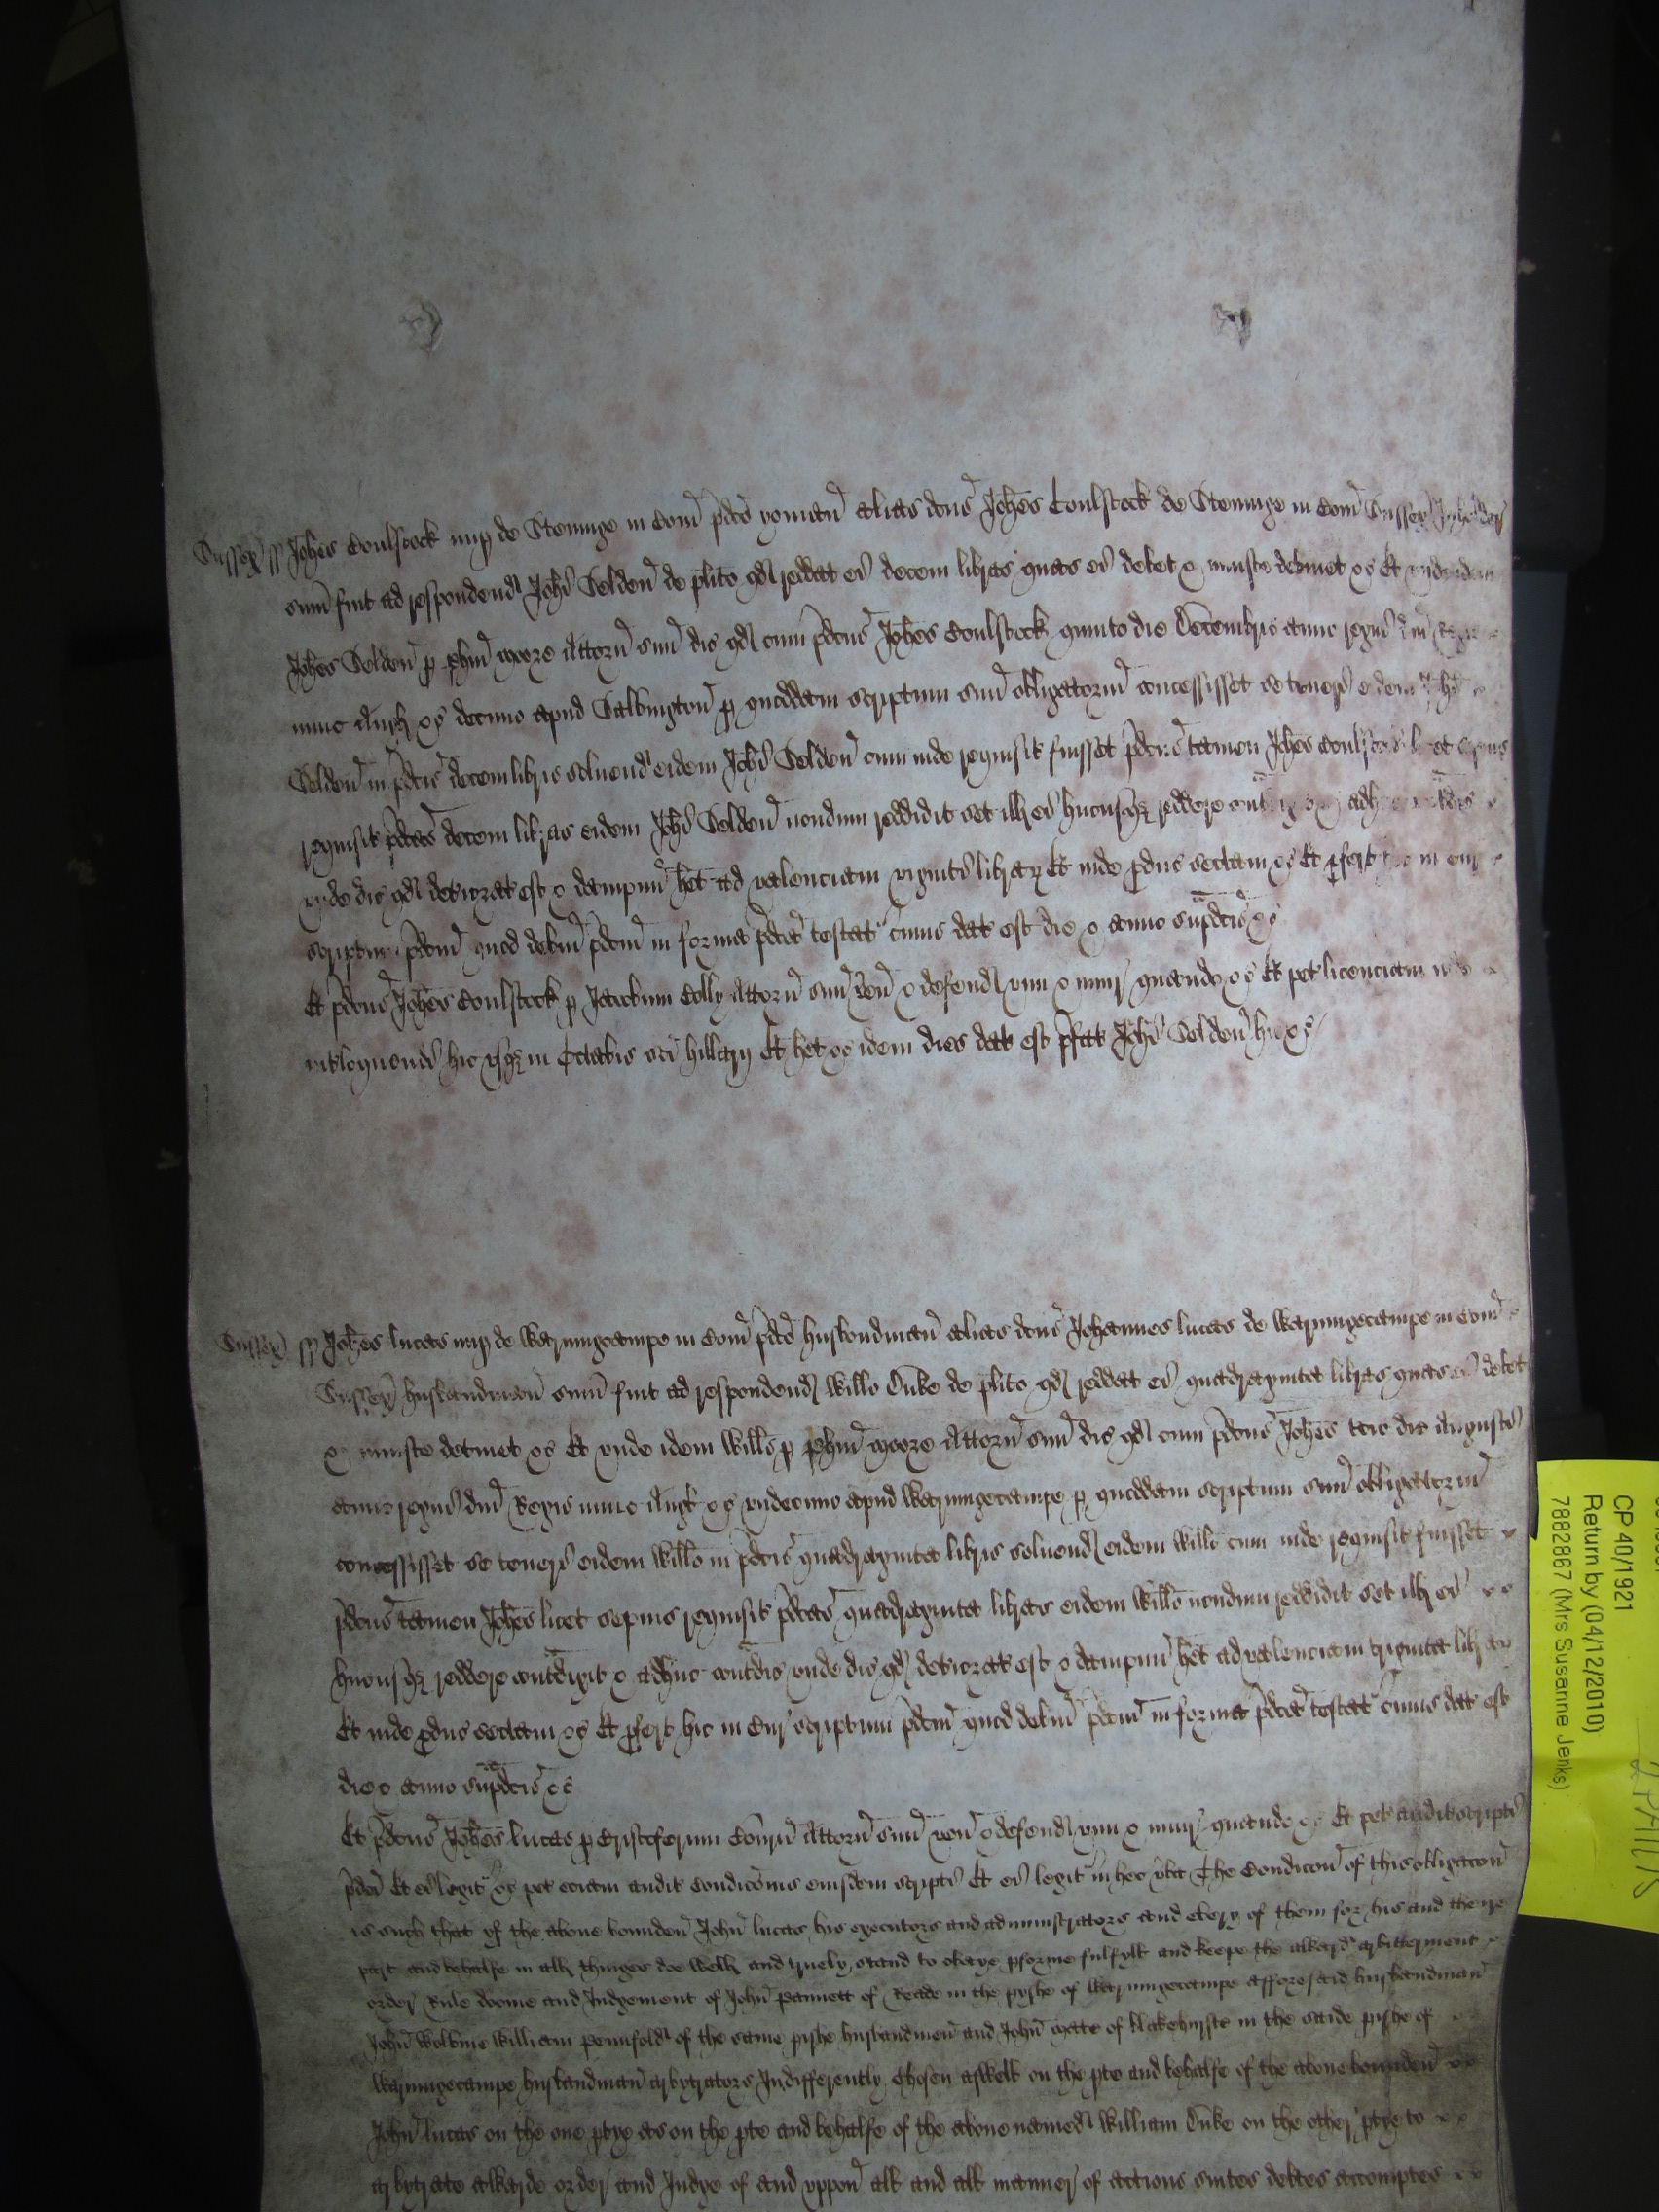 Sussex ss Johes Coulstock nup de Stenynge in Com pdco yoman alias dcus Johes Coulstock de Stenynge in Com Sussex
sum fuit ad respondend Johi Selden de plito qd reddat ei decem libras quas ei debet & iniuste detinet &c Et unde idem
Johes Selden p Phm Moore Attorn suu dic qd cum pdcus Johes Coulstock quinto die Decembris anno regni dni Regis
nunc Angl &c decimo apud Salbington p quoddam scriptum suu obligatoriu concessisset se teneri eidem Johi
Selden in pdcis decem libris soluend eidem Johi Selden cum inde requisit fuisset pdcus tamen Johes Coulstock licet sepius
requisit pdcas decem libras eidem Johi Selden nondum reddidit set ill ei hucusqz reddere contradixit & adhuc contradic
unde dic qd deteriorat est & dampnu het ad valenciam viginti librarz Et inde pduc sectam &c Et pfert hic in cur
scriptum pdcm quod debitu pdcm in forma pdca testat cuius dat est die & anno supdcis &c
Et pdcus Johes Coulstock p Jacobum Colly Attorn suu ven & defend vim & iniur quando &c Et pet licenciam inde
interloquendi hic usqz in Octabis sci Hillarij Et het &c idem dies dat est pfat Johi Selden hic &c
Sussex ss Johes Lucas nup de Warnyngecampe in Com pdco husbondman alias dcus Johannes Lucas de Warnyngecampe in Com
Sussex husbandman sum fuit ad respondend Willo Duke de plito qd reddat ei quadraginta libras quas ei debet
& iniuste detinet &c Et unde idem Wills p Phm Moore Attorn suu dic qd cum pdcus Johes tcio die Augusti
anno regni dni Regis nunc Angl &c undecimo apud Warnyngecampe p quoddam scriptum suu obligatoriu
concessisset se teneri eidem Willo in pdcis quadraginta libris soluend eidem Willo cum inde requisit fuisset
pdcus tamen Johes licet sepius requisit pdcas quadraginta libras eidem Willo nondum reddidit set ill ei
hucusqz reddere contradixit & adhuc contradic unde dic qd deteriorat est & dampnu het ad valenciam triginta librarz
Et inde pduc sectam &c Et pfert hic in Cur scriptum pdcm quod debitu pdcm in forma pdca testat cuius dat est
die & anno supdcis &c
Et pdcus Johes Lucas p Cristoferum Attorn suu ven & defend vim & iniur quando &c Et pet audit scripti
pdci Et ei legit &c pet eciam audit Condicionis eiusdem scripti Et ei legit in hec vba The Condicon of this obligacon
is such that yf the aboue bounden John Lucas his executors and administrators and euery of them for his and there
part and behalfe in all thinges doe well and truely stand to obaye pforme fulfyll and keepe the award arbitterment
order Rule doome and Judgement of John Pannett of Reade in the pyshe of Warnyngecampe afforesaid husbandman
John William Pennfold of the same pishe husbandmen and John of in the saide pishe of
Warnyngecampe husbandman arbytrators Indifferently Chosen aswell on the pte and behalfe of the aboue bounden
John Lucas on the one ptye as on the pte and behalfe of the aboue named William Duke on the other ptye to
arbytrate awarde order and Judge of and uppon all and all manner of actions suites debtes accomptes
CP 40/1921
Return by (04/12/2010)
7882867 (Mrs Susanne Jenks)